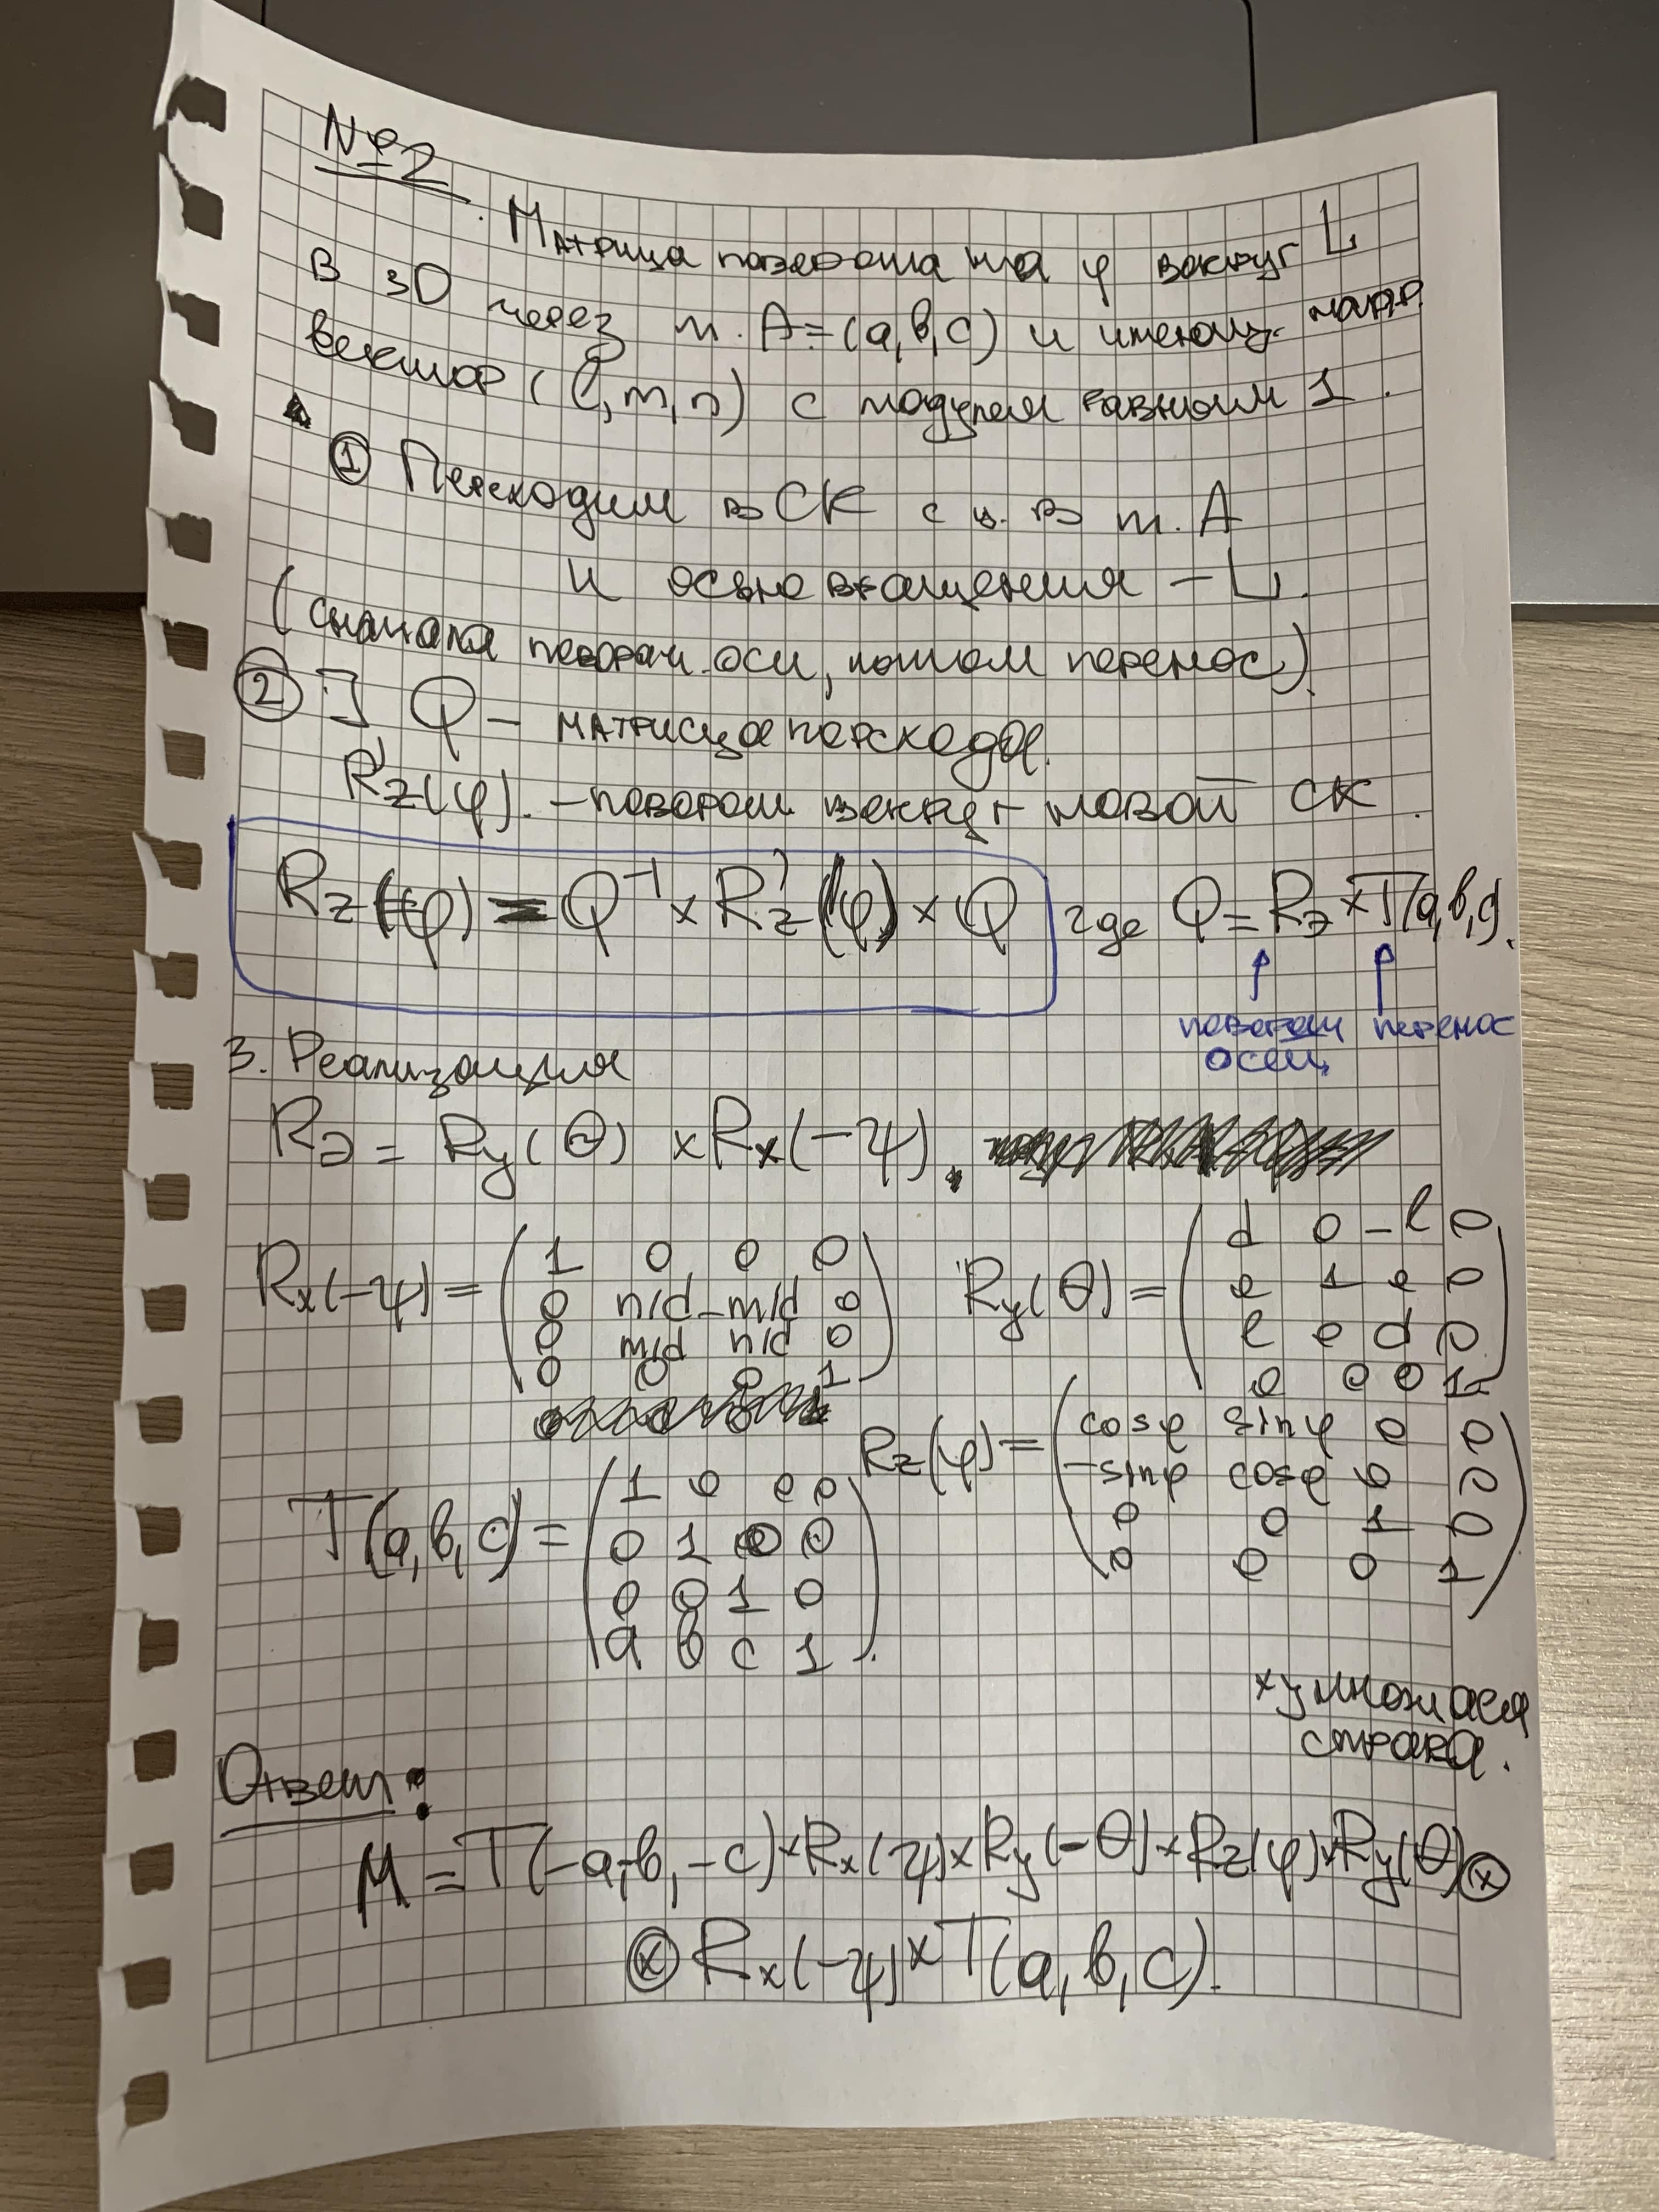 №2. Матрица поворота на φ вокруг L
в 3D через т. A=(a,b,c) и имеющ. напр.
вектор (l,m,n) с модулем равным 1.
① Переходим в СК с ц. в т. A
и осью вращения – L.
(сначала поворач. оси, потом перенос).
② ] Q – матрица перехода.
R'z(φ). – поворот вокруг новой СК.
Rz(φ) = Q⁻¹ × R'z(φ) × Q где Q = Rэ × T(a,b,c).
поворот осей
перенос
3. Реализация
Rэ = Ry(θ) × Rx(-ψ).
Rx(-ψ) = ( 1 0 0 0
0 n/d -m/d 0
0 m/d n/d 0
0 0 0 1 )
Ry(θ) = ( d 0 -l 0
0 1 0 0
l 0 d 0
0 0 0 1 )
Rz(φ) = ( cosφ sinφ 0 0
-sinφ cosφ 0 0
0 0 1 0
0 0 0 1 )
T(a,b,c) = ( 1 0 0 0
0 1 0 0
0 0 1 0
a b c 1 ).
×умножаем
справа.
Ответ:
M = T(-a,-b,-c) × Rx(ψ) × Ry(-θ) × Rz(φ) × Ry(θ) ⊗
⊗ Rx(-ψ) × T(a,b,c).